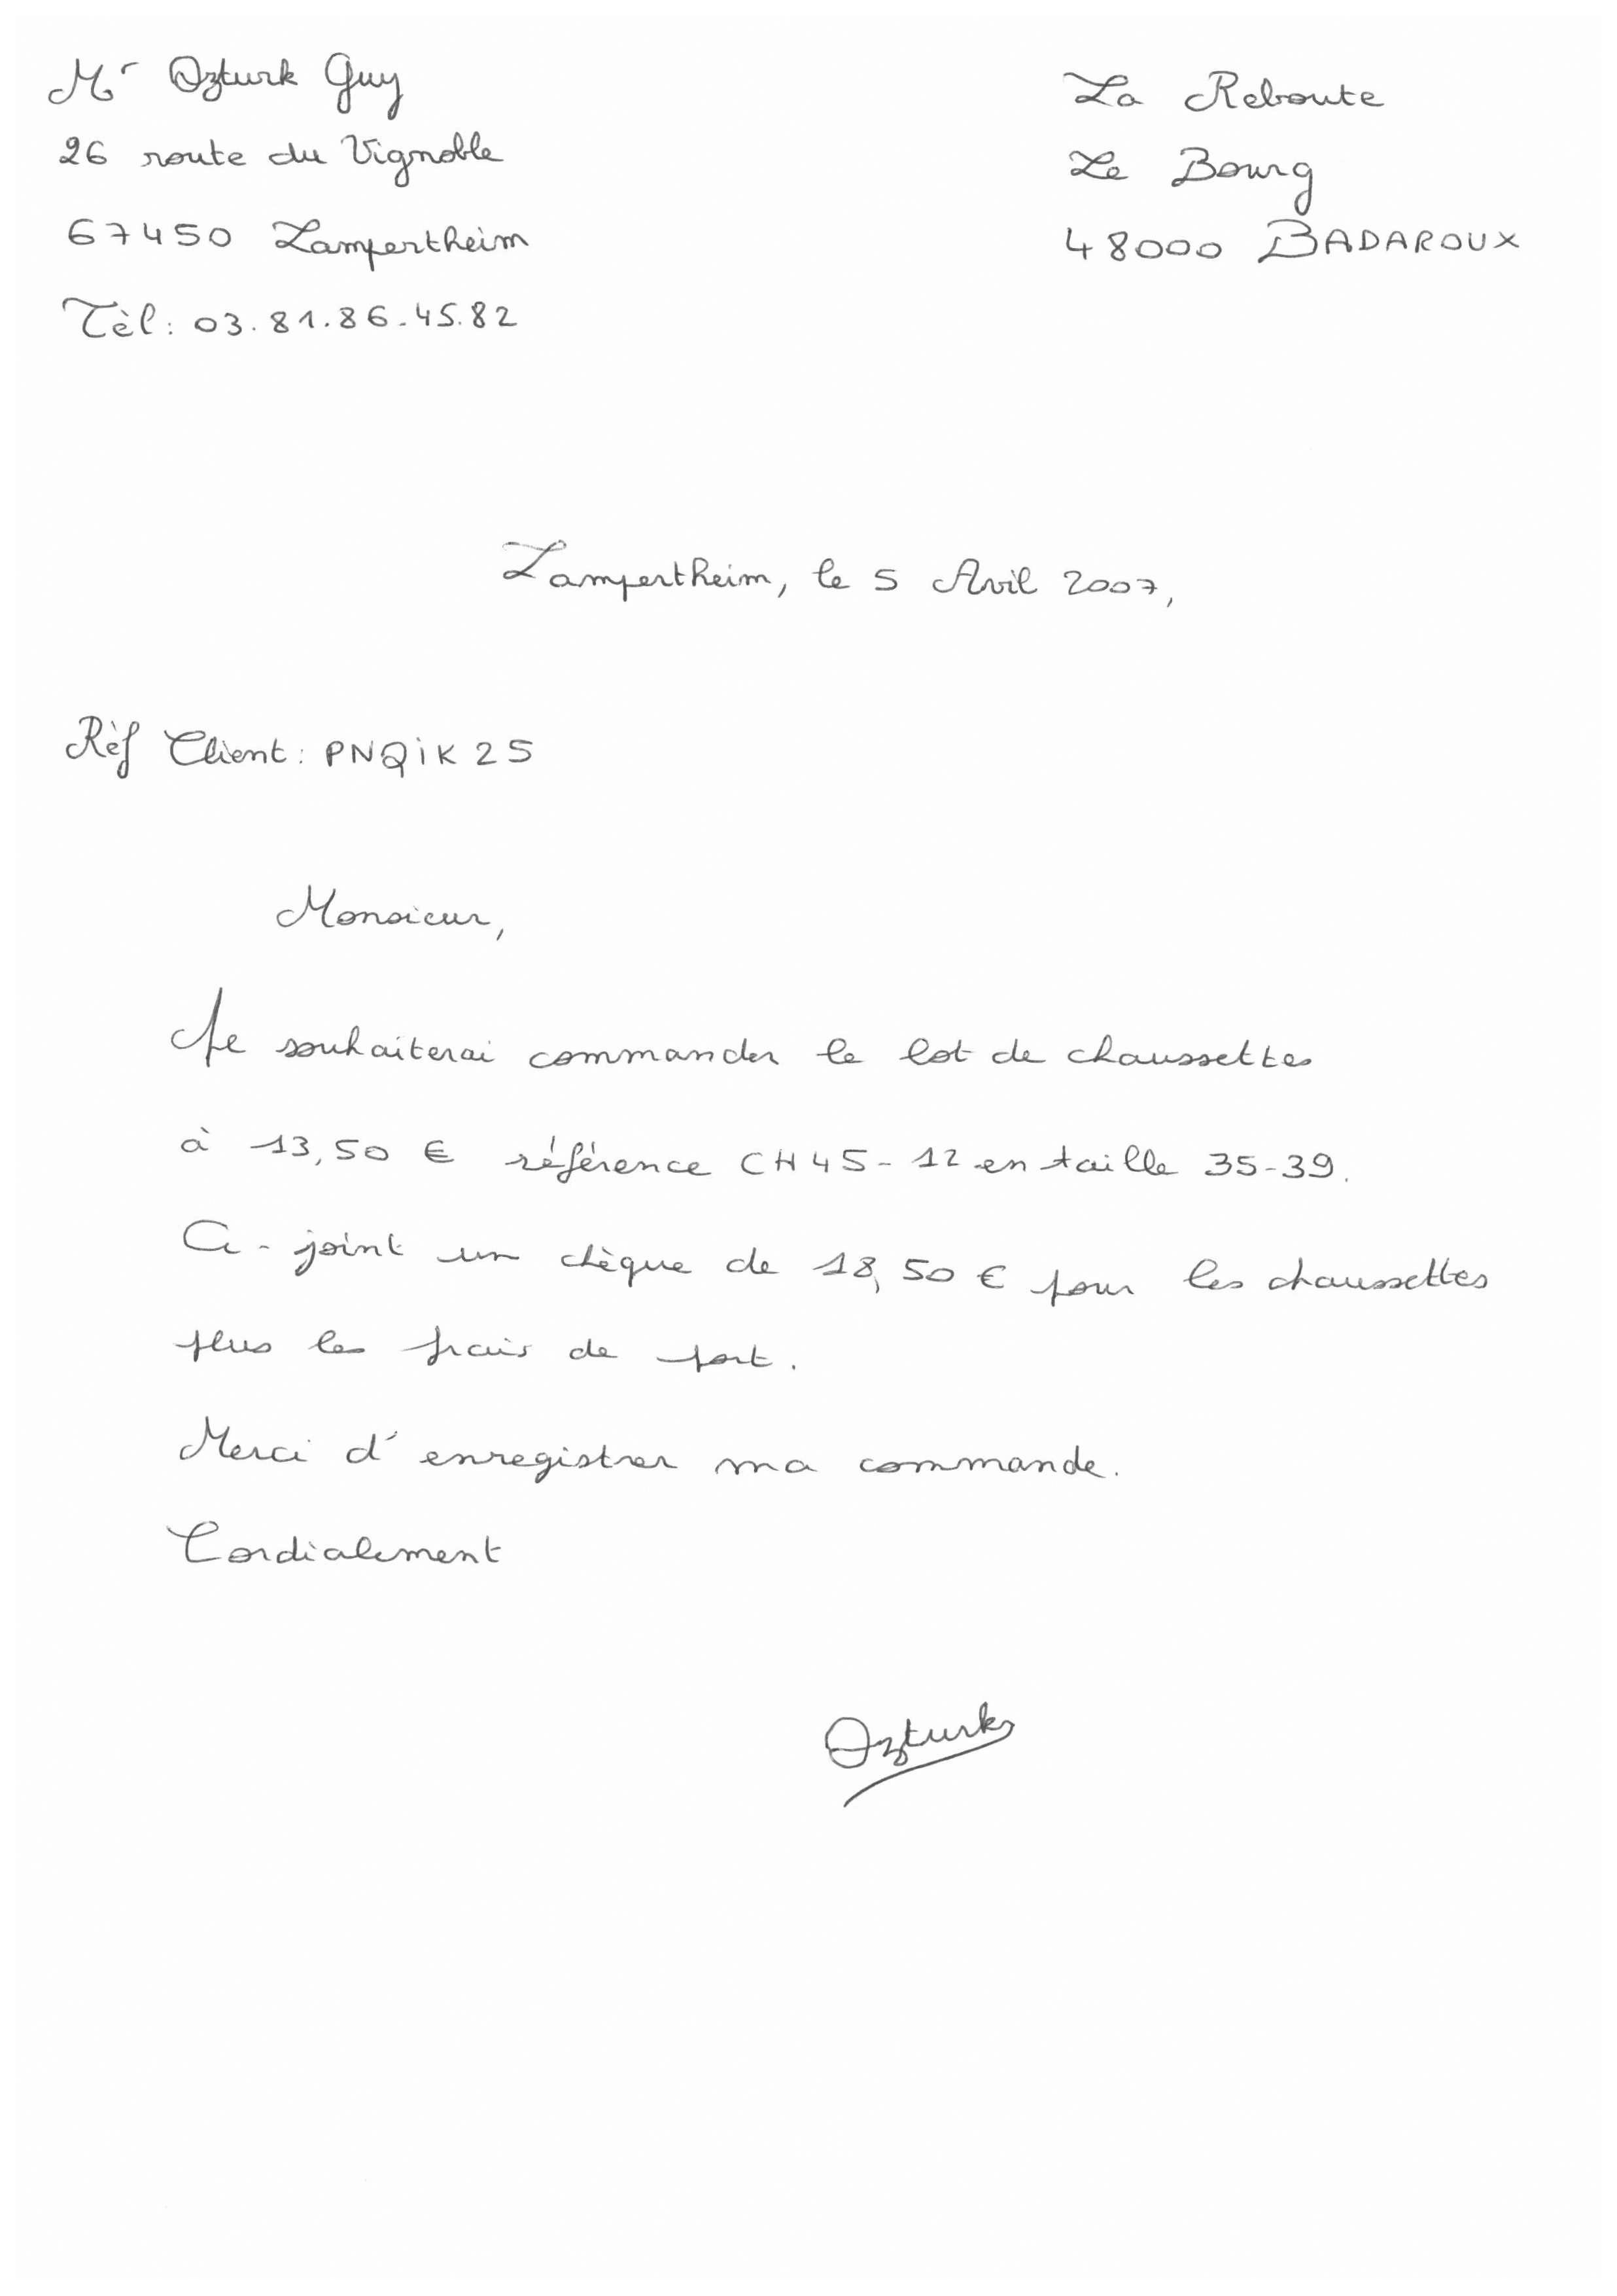 Mr Ozturk Guy
26 route du Vignoble
67450 Lampertheim
Tèl: 03.81.86.45.82
La Reboute
Le Bourg
48000 BADAROUX
Lampertheim, le 5 Avril 2007,
Rèf Client: PNQiK25
Monsieur,
Je souhaiterai commander le lot de chaussettes
à 13,50 € référence CH45-12 en taille 35-39.
Ci-joint un chèque de 18,50 € pour les chaussettes
plus les frais de port.
Merci d'enregistrer ma commande.
Cordialement
Ozturk